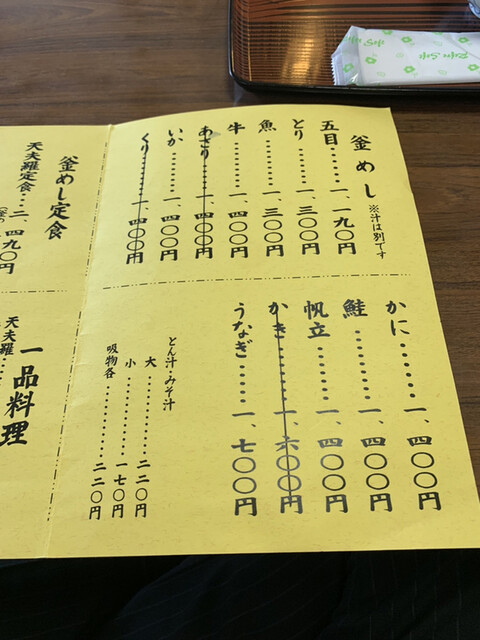 釜めし ※汁は別です
五目……一、一九〇円
とり……一、三〇〇円
魚……一、三〇〇円
牛……一、四〇〇円
あさり……一、四〇〇円
いか……一、四〇〇円
くり……一、四〇〇円
かに……一、四〇〇円
鮭……一、四〇〇円
帆立……一、四〇〇円
かき……一、六〇〇円
うなぎ……一、七〇〇円
とん汁・みそ汁
大…………二二〇円
小…………一七〇円
吸物各…………二二〇円
釜めし定食
天夫羅定食…二、四九〇円
一品料理
天夫羅